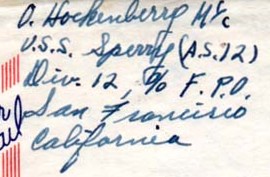 O. Hockenberry M1/c
U.S.S. Sperry (A.S.12)
Div. 12, % F.P.O.
San Francisco
California